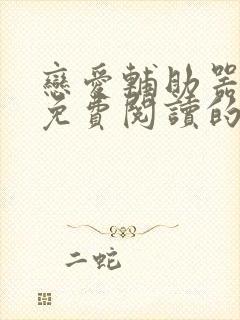 戀愛輔助器
免費閱讀的
二蛇